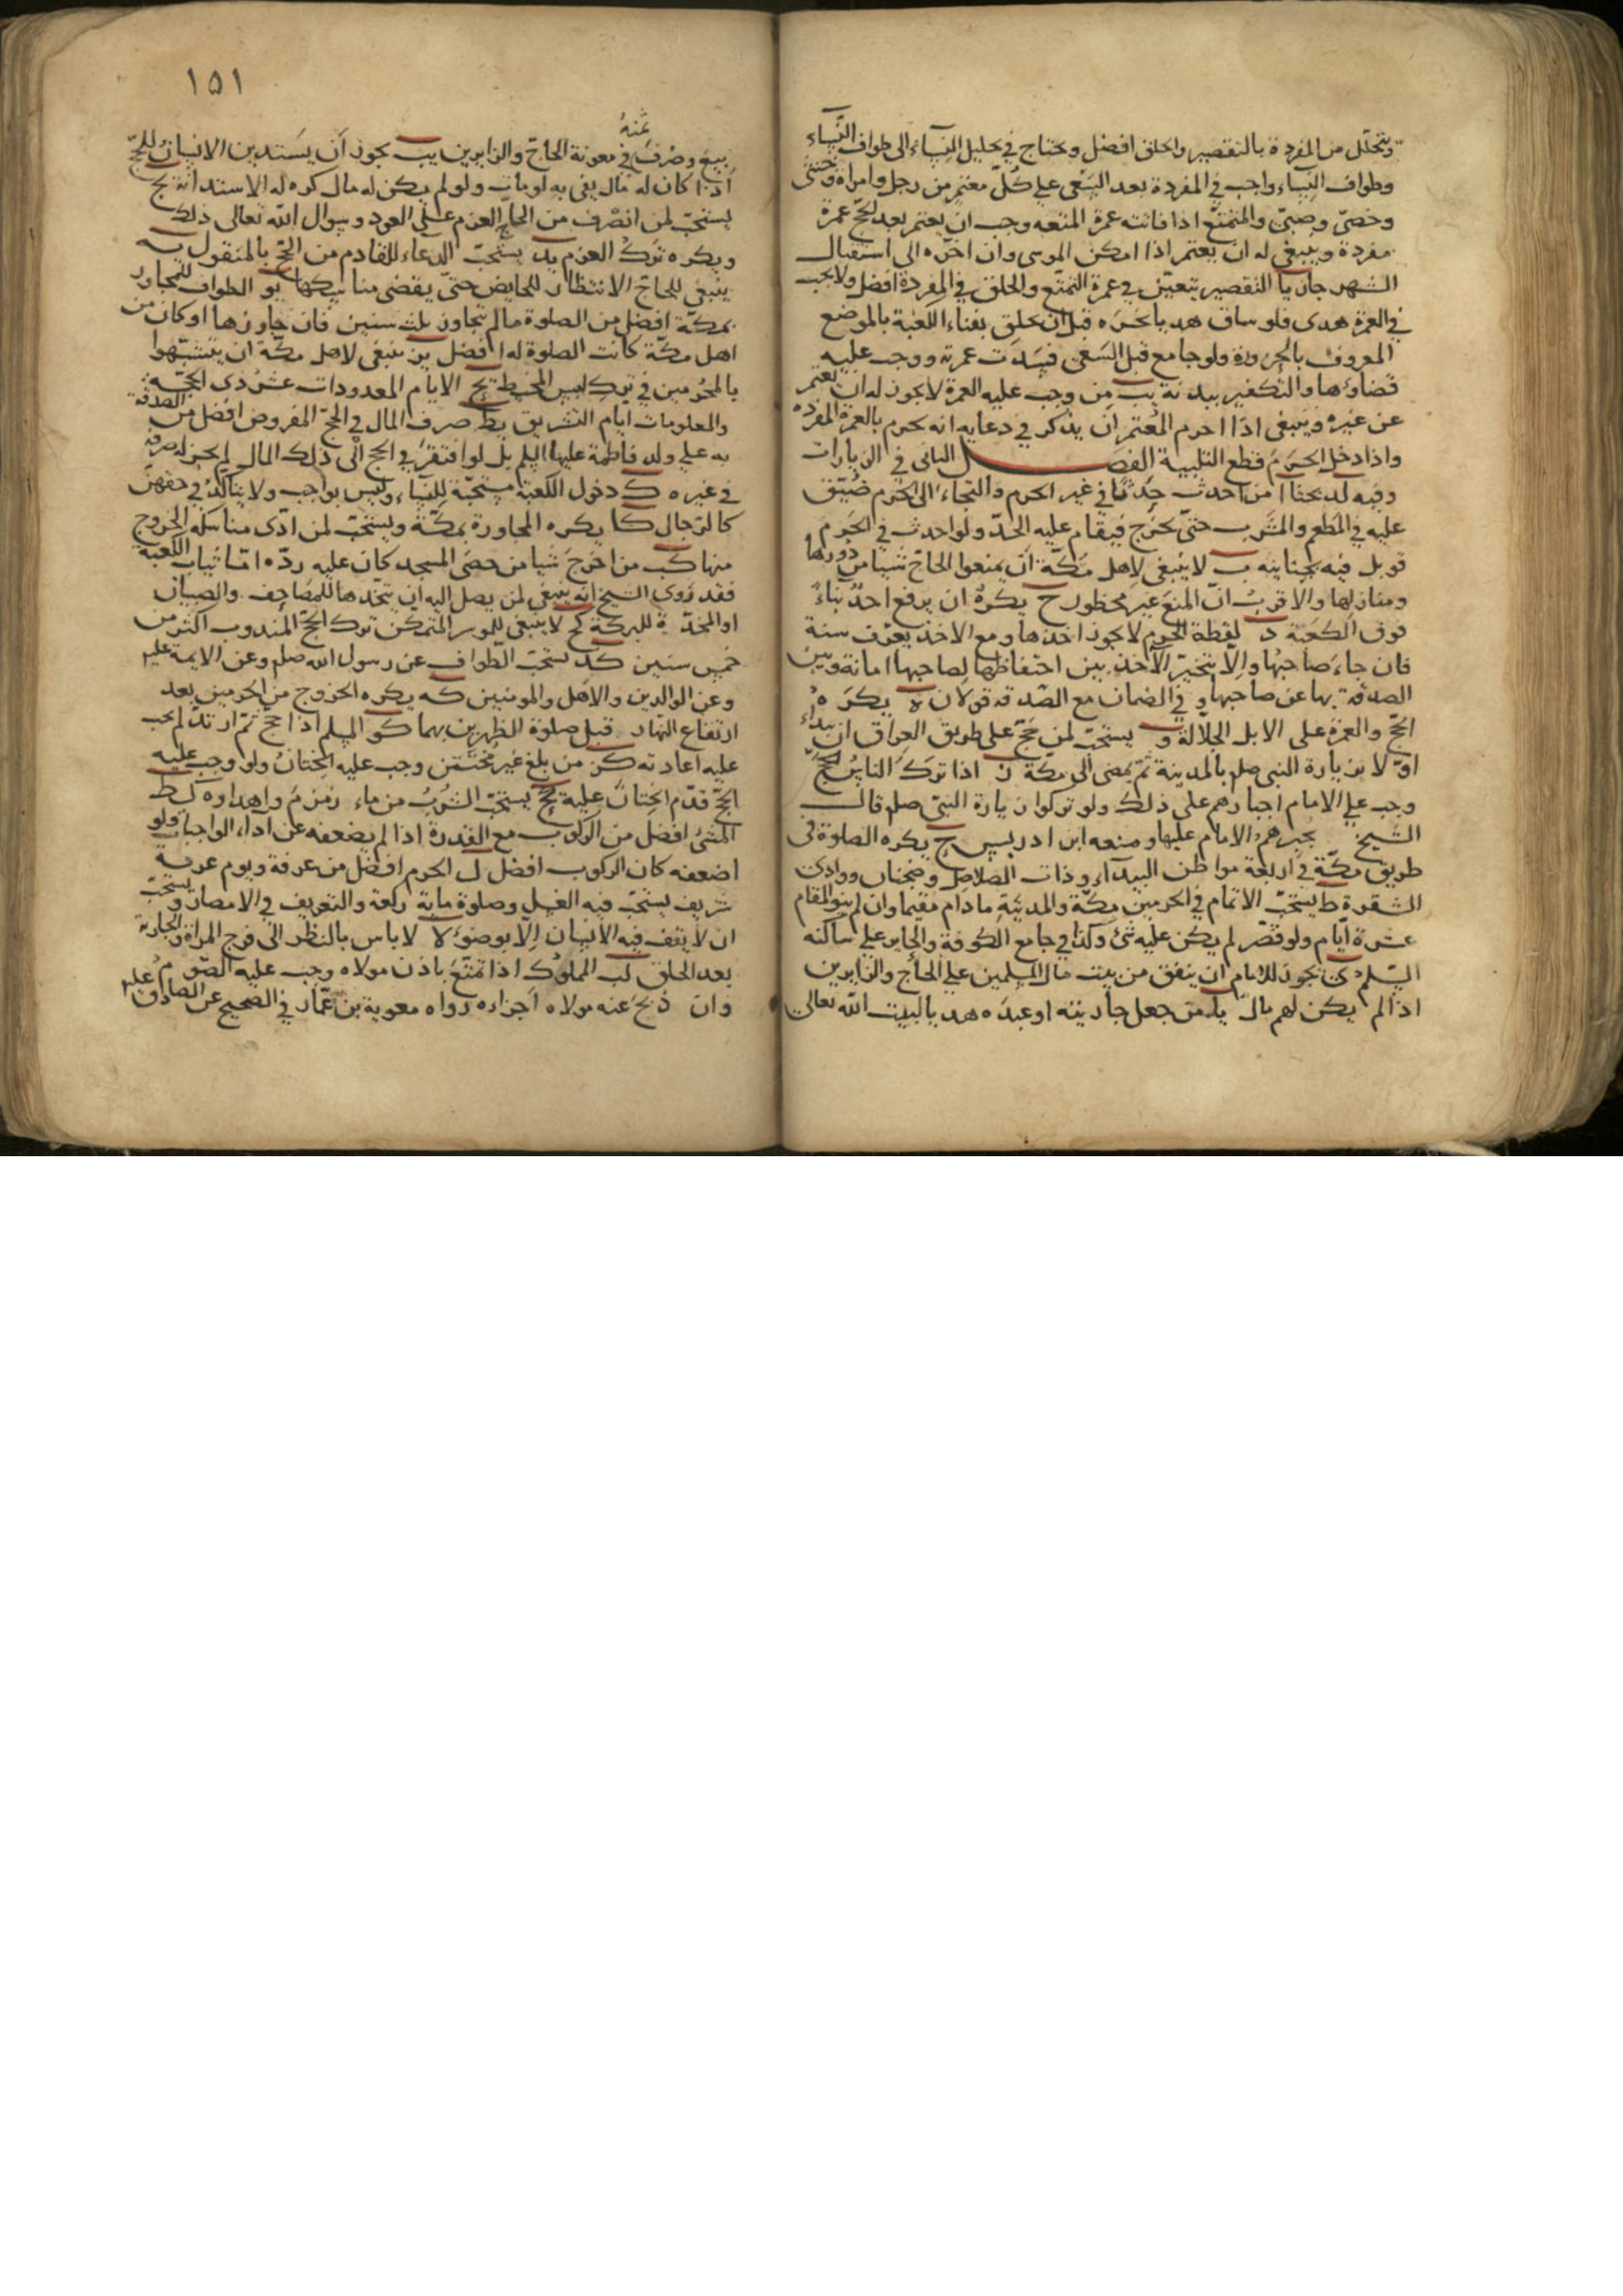 ويتحلل من المفردة بالتقصير والحلق افضل ويحتاج في تحليل النساء الى طواف النساء
وطواف النساء واجب في المفردة بعد السعى على كل معتمر من رجل وامراة وخنثى
وخصى وصبى والمتمتع اذا فاتته عمرة المتعه وجب ان يعتمر بعد الحج عمرة
مفردة وينبغى له ان يعتمر اذا امكن الموسى وان اخره الى استقبال
الشهر جاز يا التقصير يتعين في عمرة التمتع والحلق في المفردة افضل ولا يجب
في العمرة هدى فلو ساق هديا نحره قبل ان يحلق بفناء الكعبة بالموضع
المعروف بالحزورة ولو جامع قبل السعى فسدت عمرته ووجب عليه
قضاؤها والتكفير ببدنة يب من وجب عليه العمرة لا يجوز له ان يعتمر
عن غيره وينبغى اذا احرم المعتمر ان يذكر في دعايه انه يحرم بالعمرة المفردة
واذا دخل الحرم قطع التلبية الفصل الثانى في الزيارات
وفيه لد بحثا ا من احدث حدثا في غير الحرم والتجاء الى الحرم ضيق
عليه في المطعم والمشرب حتى يخرج فيقام عليه الحد ولو احدث في الحرم
قوبل فيه بجنايته ب لا ينبغى لاهل مكة ان يمنعوا الحاج شيا من دورها
ومنازلها والاقرب ان المنع غير محظور ج يكره ان يرفع احد بناء
فوق الكعبة د لقطة الحرم لا يجوز اخذها ومع الاخذ يعرف سنة
فان جاء صاحبها والا يتخير الآخذ بين احتفاظها لصاحبها امانة وبين
الصدقة بها عن صاحبها وفي الضمان مع الصدقة قولان ه يكره
الحج والعمرة على الابل الجلالة و يستحب لمن حج على طريق العراق ان يبداء
اولا بزيارة النبى صلم بالمدينة ثم يمضى الى مكة ز اذا ترك الناس الحج
وجب على الامام اجبارهم على ذلك ولو تركوا زيارة النبى صلم قال
الشيخ يجبرهم الامام عليها ومنعه ابن ادريس ح يكره الصلوة فى
طريق مكة في اربعة مواطن البيدآء وذات الصلاصل وضجنان ووادى
الشقرة ط يستحب الاتمام في الحرمين مكة والمدينة ما دام مقيما وان لم ينو المقام
عشرة ايام ولو قصر لم يكن عليه شئ وكذا في جامع الكوفة والحاير على ساكنه
السلم ى يجوز للامام ان ينفق من بيت مال المسلمين على الحاج والزايرين
اذا لم يكن لهم مال يا من جعل جاريته او عبده هديا لبيت الله تعالى
١٥١
بيع وصرف ثمنه في معونة الحاج والزايرين يب يجوز ان يستدين الانسان للحج
اذا كان له مال يفى به لو مات ولو لم يكن له مال كره له الاستدانة يج
يستحب لمن انصرف من الحاج العزم على العود وسوال الله تعالى ذلك
ويكره ترك العزم يد يستحب الدعاء للقادم من الحج بالمنقول يه
ينبغى للحاج الانتظار للحايض حتى يقضى مناسكها يو الطواف للمجاور
بمكة افضل من الصلوة ما لم يتجاوز ثلث سنين فان جاوزها او كان من
اهل مكة كانت الصلوة له افضل يز ينبغى لاهل مكة ان يتشبهوا
بالمحرمين في ترك لبس المخيط يح الايام المعدودات عشر ذى الحجه
والمعلومات ايام التشريق يط صرف المال في الحج المفروض افضل من الصدقة
به على ولد فاطمة عليها السلم بل لو افتقر في الحج الى ذلك المال لم يجز له صرفه
في غيره ك دخول الكعبة مستحبة للنساء وليس بواجب ولا يتاكد في حقهن
كالرجال كا يكره المجاورة بمكة ويستحب لمن ادى مناسكه الخروج
منها كب من اخرج شيا من حصى المسجد كان عليه رده اما ثياب الكعبة
فقد روى الشيخ انه ينبغى لمن يصل اليه ان يتخذها للمصاحف والصبيان
او المخدة للبركة كج لا ينبغى للموسر المتمكن ترك الحج المندوب اكثر من
خمس سنين كد يستحب الطواف عن رسول الله صلم وعن الايمة عليهم
وعن الوالدين والاهل والمومنين كه يكره الخروج من الحرمين بعد
ارتفاع النهار قبل صلوة الظهرين بهما كو المسلم اذا حج ثم ارتد لم يجب
عليه اعادته كز من بلغ غير مختتن وجب عليه الختان ولو وجب عليه
الحج قدم الختان عليه كح يستحب الشرب من ماء زمزم واهداوه كط
المشى افضل من الركوب مع القدرة اذا لم يضعفه عن اداء الواجبات ولو
اضعفه كان الركوب افضل ل الحرم افضل من عرفة ويوم عرفة
شريف يستحب فيه الغسل وصلوة ماية ركعة والتعريف في الامصار ويستحب
ان لا يقف فيه الانسان الا بوضوء لا لا باس بالنظر الى فرج المراة والجارية
بعد الحلق لب المملوك اذا تمتع باذن مولاه وجب عليه الصوم
وان ذبح عنه مولاه اجزاه رواه معوية بن عمار في الصحيح عن الصادق عليه